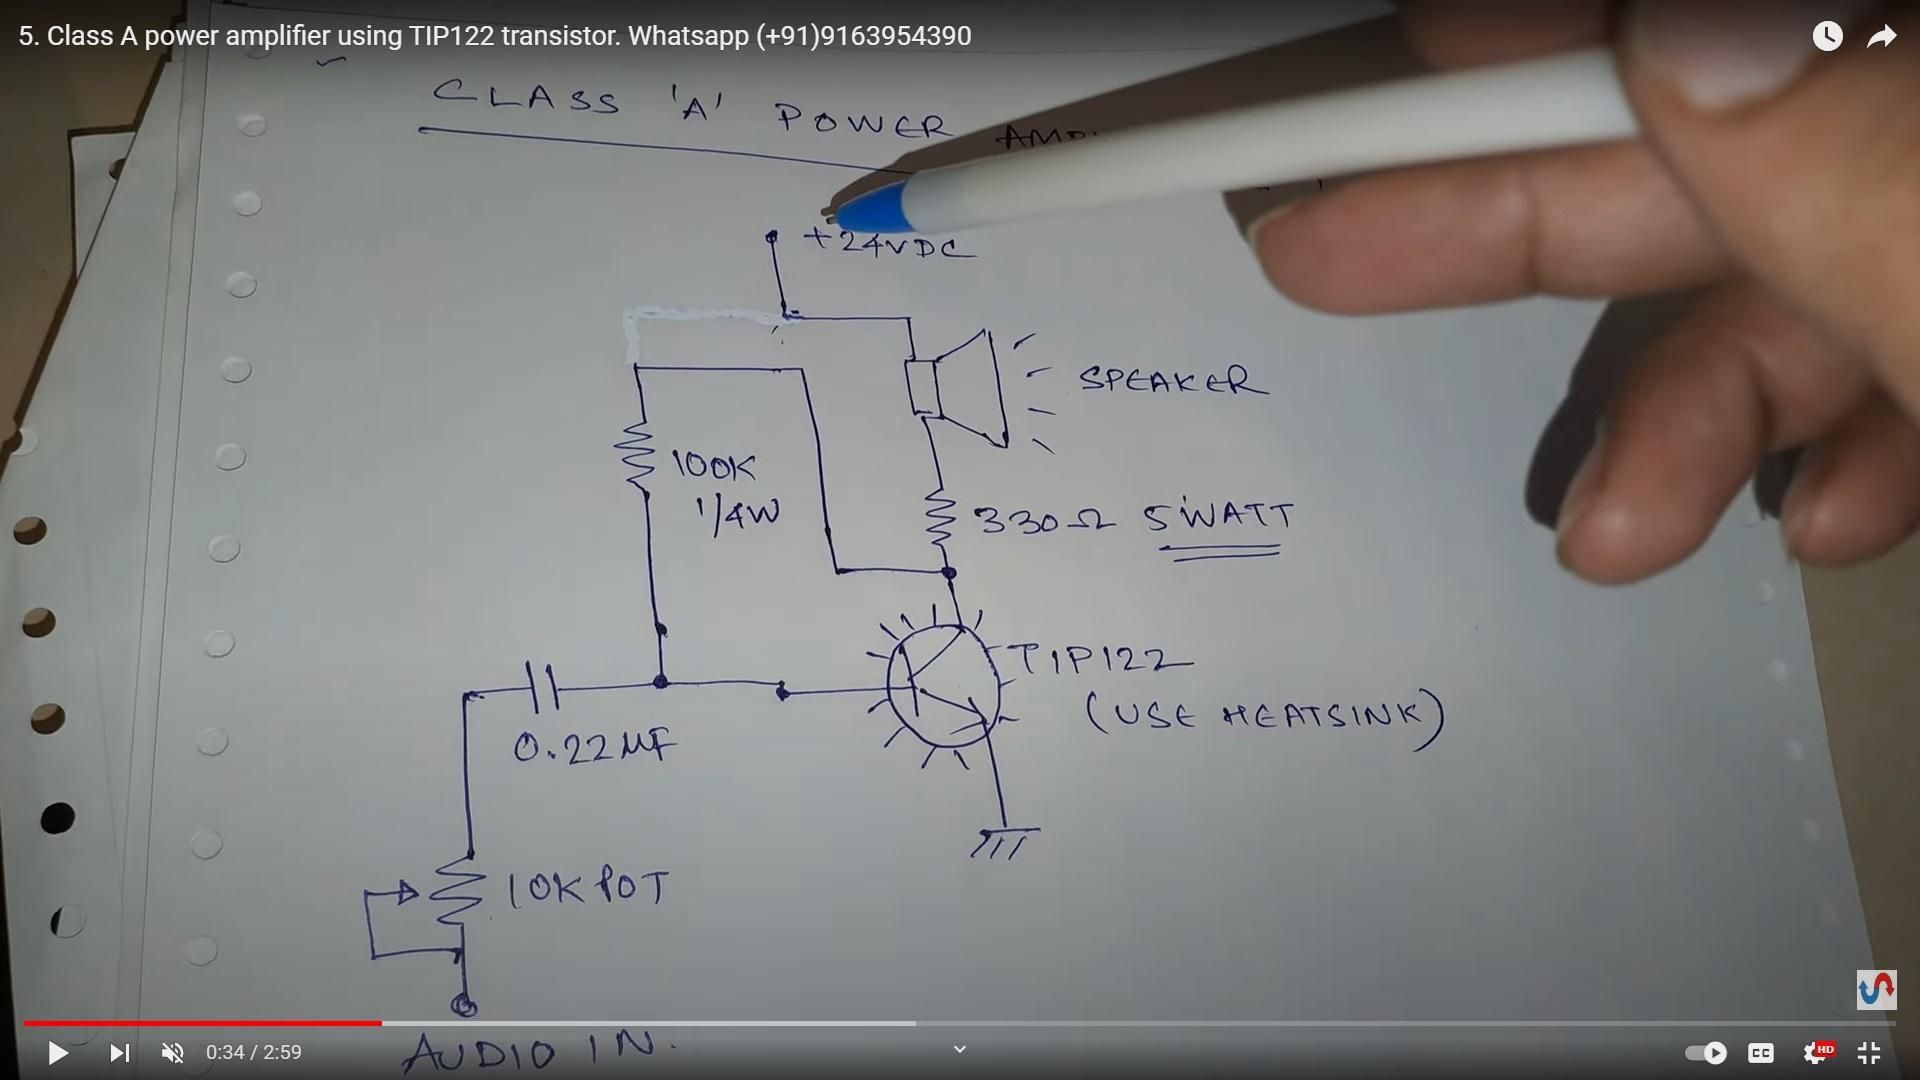 5. Class A power amplifier using TIP122 transistor. Whatsapp (+91)9163954390
CLASS 'A' POWER
+24VDC
SPEAKER
100K
1/4W
330Ω 5WATT
TIP122
(USE HEATSINK)
0.22MF
10K POT
AUDIO IN.
0:34 / 2:59
CC
HD